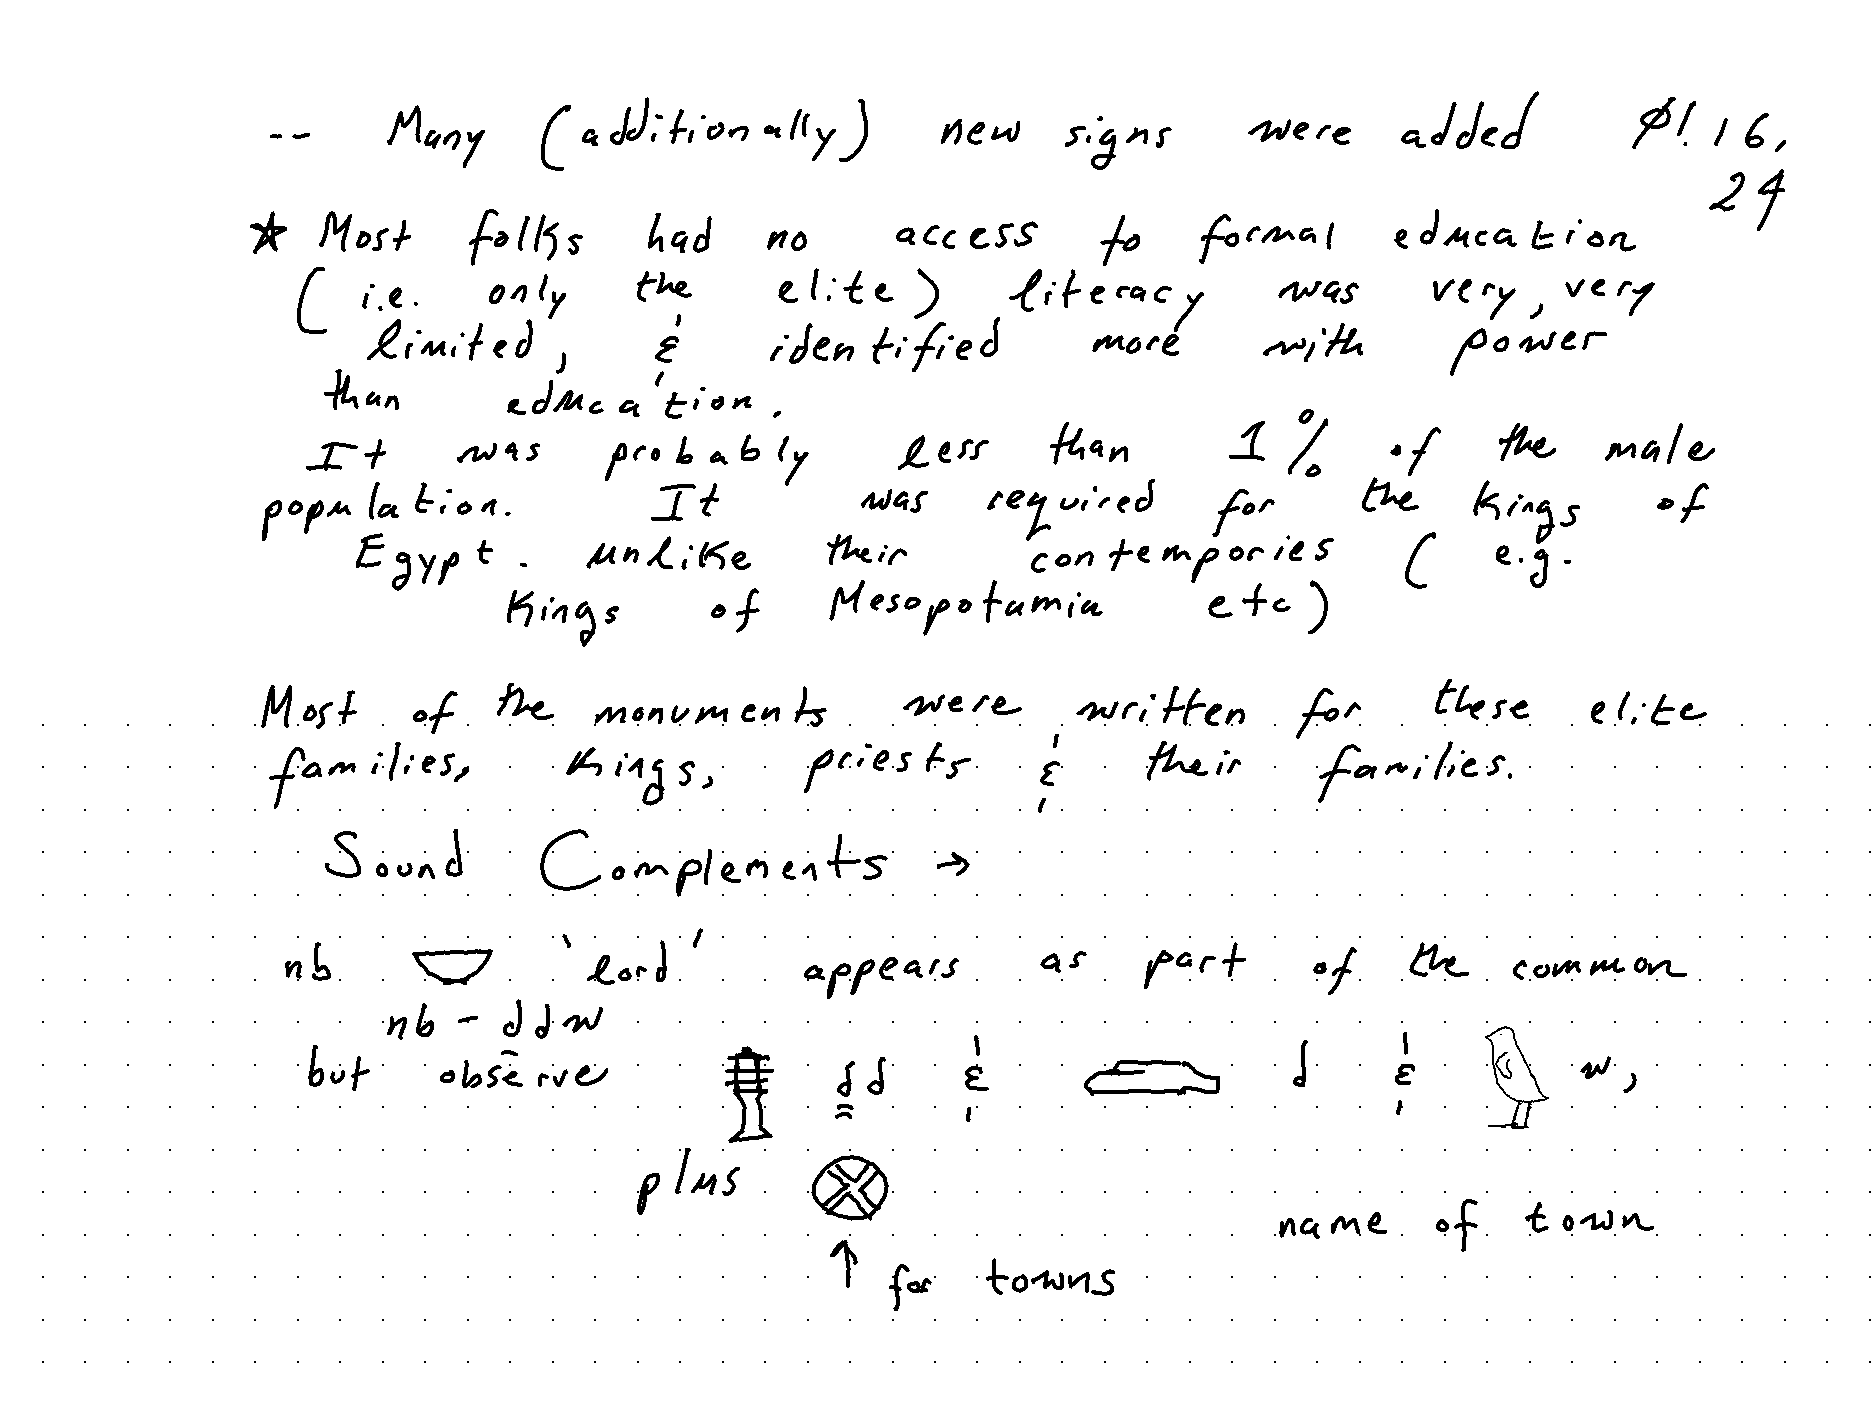 -- Many (additionally) new signs were added Ø! 16,
24
★ Most folks had no access to formal education
(i.e. only the elite) literacy was very, very
limited, & identified more with power
than education.
It was probably less than 1% of the male
population. It was required for the kings of
Egypt. unlike their contempories (e.g.
Kings of Mesopotamia etc)
Most of the monuments were written for these elite
families, kings, priests & their families.
Sound Complements →
nb 𓎟 'lord' appears as part of the common
nb - ḏdw
but observe 𓊽 ḏd & 𓂧 d & 𓅱 w,
plus 𓊖
name of town
↑ for towns